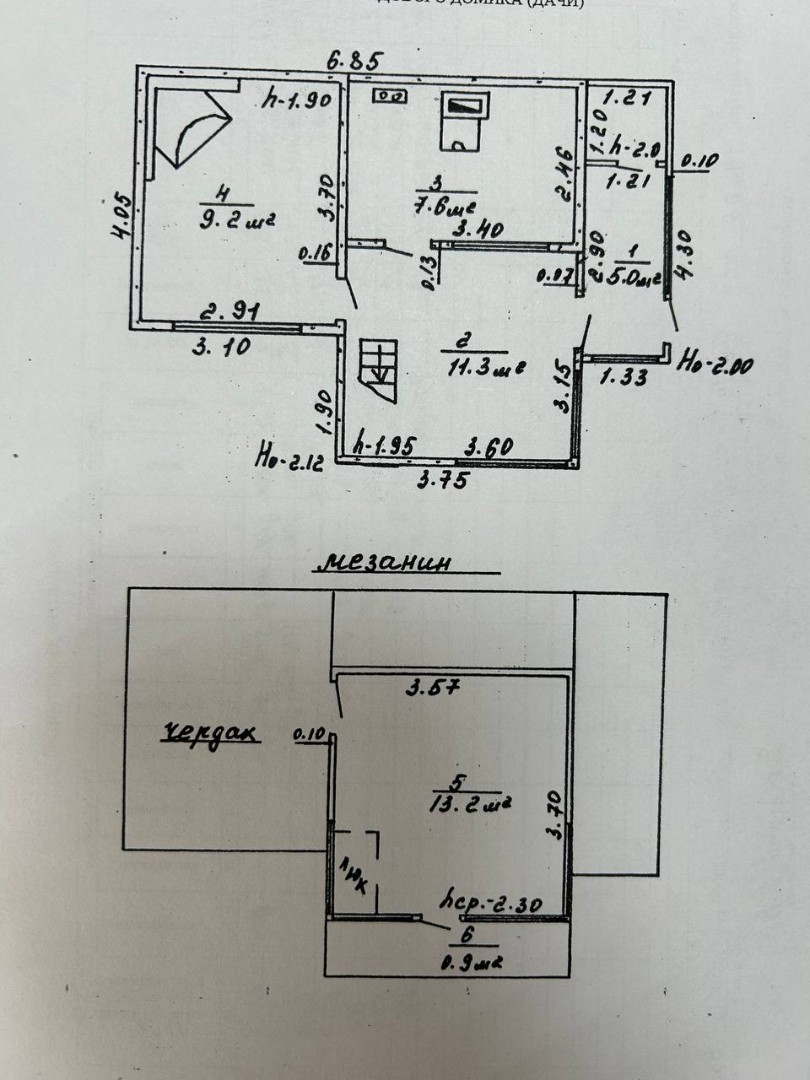 ДОМИКА (ДАЧИ)
6.85
h-1.90
1.21
1.20
h-2.0
0.10
1.21
4
9.2 м²
3.70
3
7.6 м²
2.46
3.40
4.05
0.16
0.13
0.07
2.90
1
5.0 м²
4.30
2.91
3.10
2
11.3 м²
3.15
1.33
Но-2.00
1.90
h-1.95
3.60
Но-2.12
3.75
мезанин
3.57
чердак
0.10
5
13.2 м²
3.70
люк
hср.-2.30
6
0.9 м²